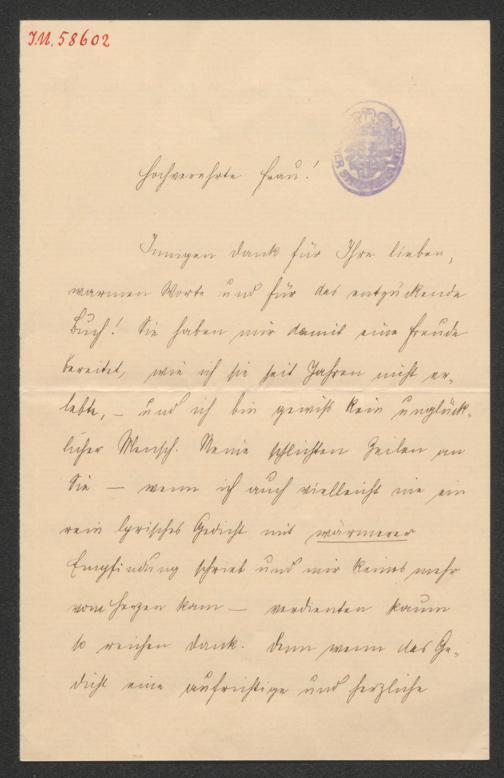 I.N. 58602
Hochverehrte Frau!
Innigen Dank für Ihre lieben,
warmen Worte und für das entzückende
Buch! Sie haben mir damit eine Freude
bereitet, wie ich sie seit Jahren nicht er-
lebte, – und ich bin gewiß kein unglück-
licher Mensch. Meine schlichten Zeilen an
Sie – wenn ich auch vielleicht nie ein
rein lyrisches Gedicht mit wärmerer
Empfindung schrieb und mir keines mehr
vom Herzen kam – verdienten kaum
so reichen Dank. Denn wenn das Ge-
dicht eine aufrichtige und herzliche